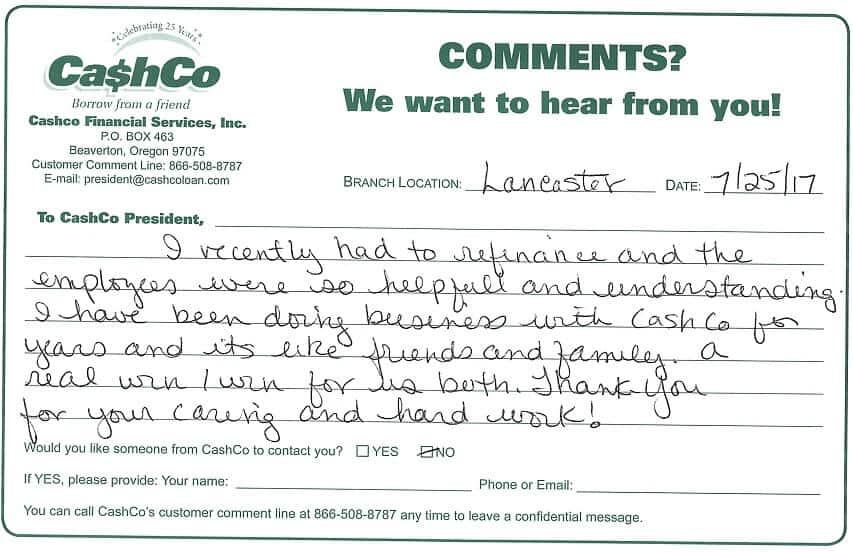 Celebrating 25 Years
Ca$hCo
Borrow from a friend
Cashco Financial Services, Inc.
P.O. BOX 463
Beaverton, Oregon 97075
Customer Comment Line: 866-508-8787
E-mail: president@cashcoloan.com
COMMENTS?
We want to hear from you!
BRANCH LOCATION: Lancaster DATE: 7/25/17
To CashCo President,
I recently had to refinance and the
employees were so helpfull and understanding.
I have been doing business with CashCo for
years and its like friends and family. a
real win/win for us both. Thank you
for your caring and hard work!
Would you like someone from CashCo to contact you? YES NO
If YES, please provide: Your name: Phone or Email:
You can call CashCo's customer comment line at 866-508-8787 any time to leave a confidential message.